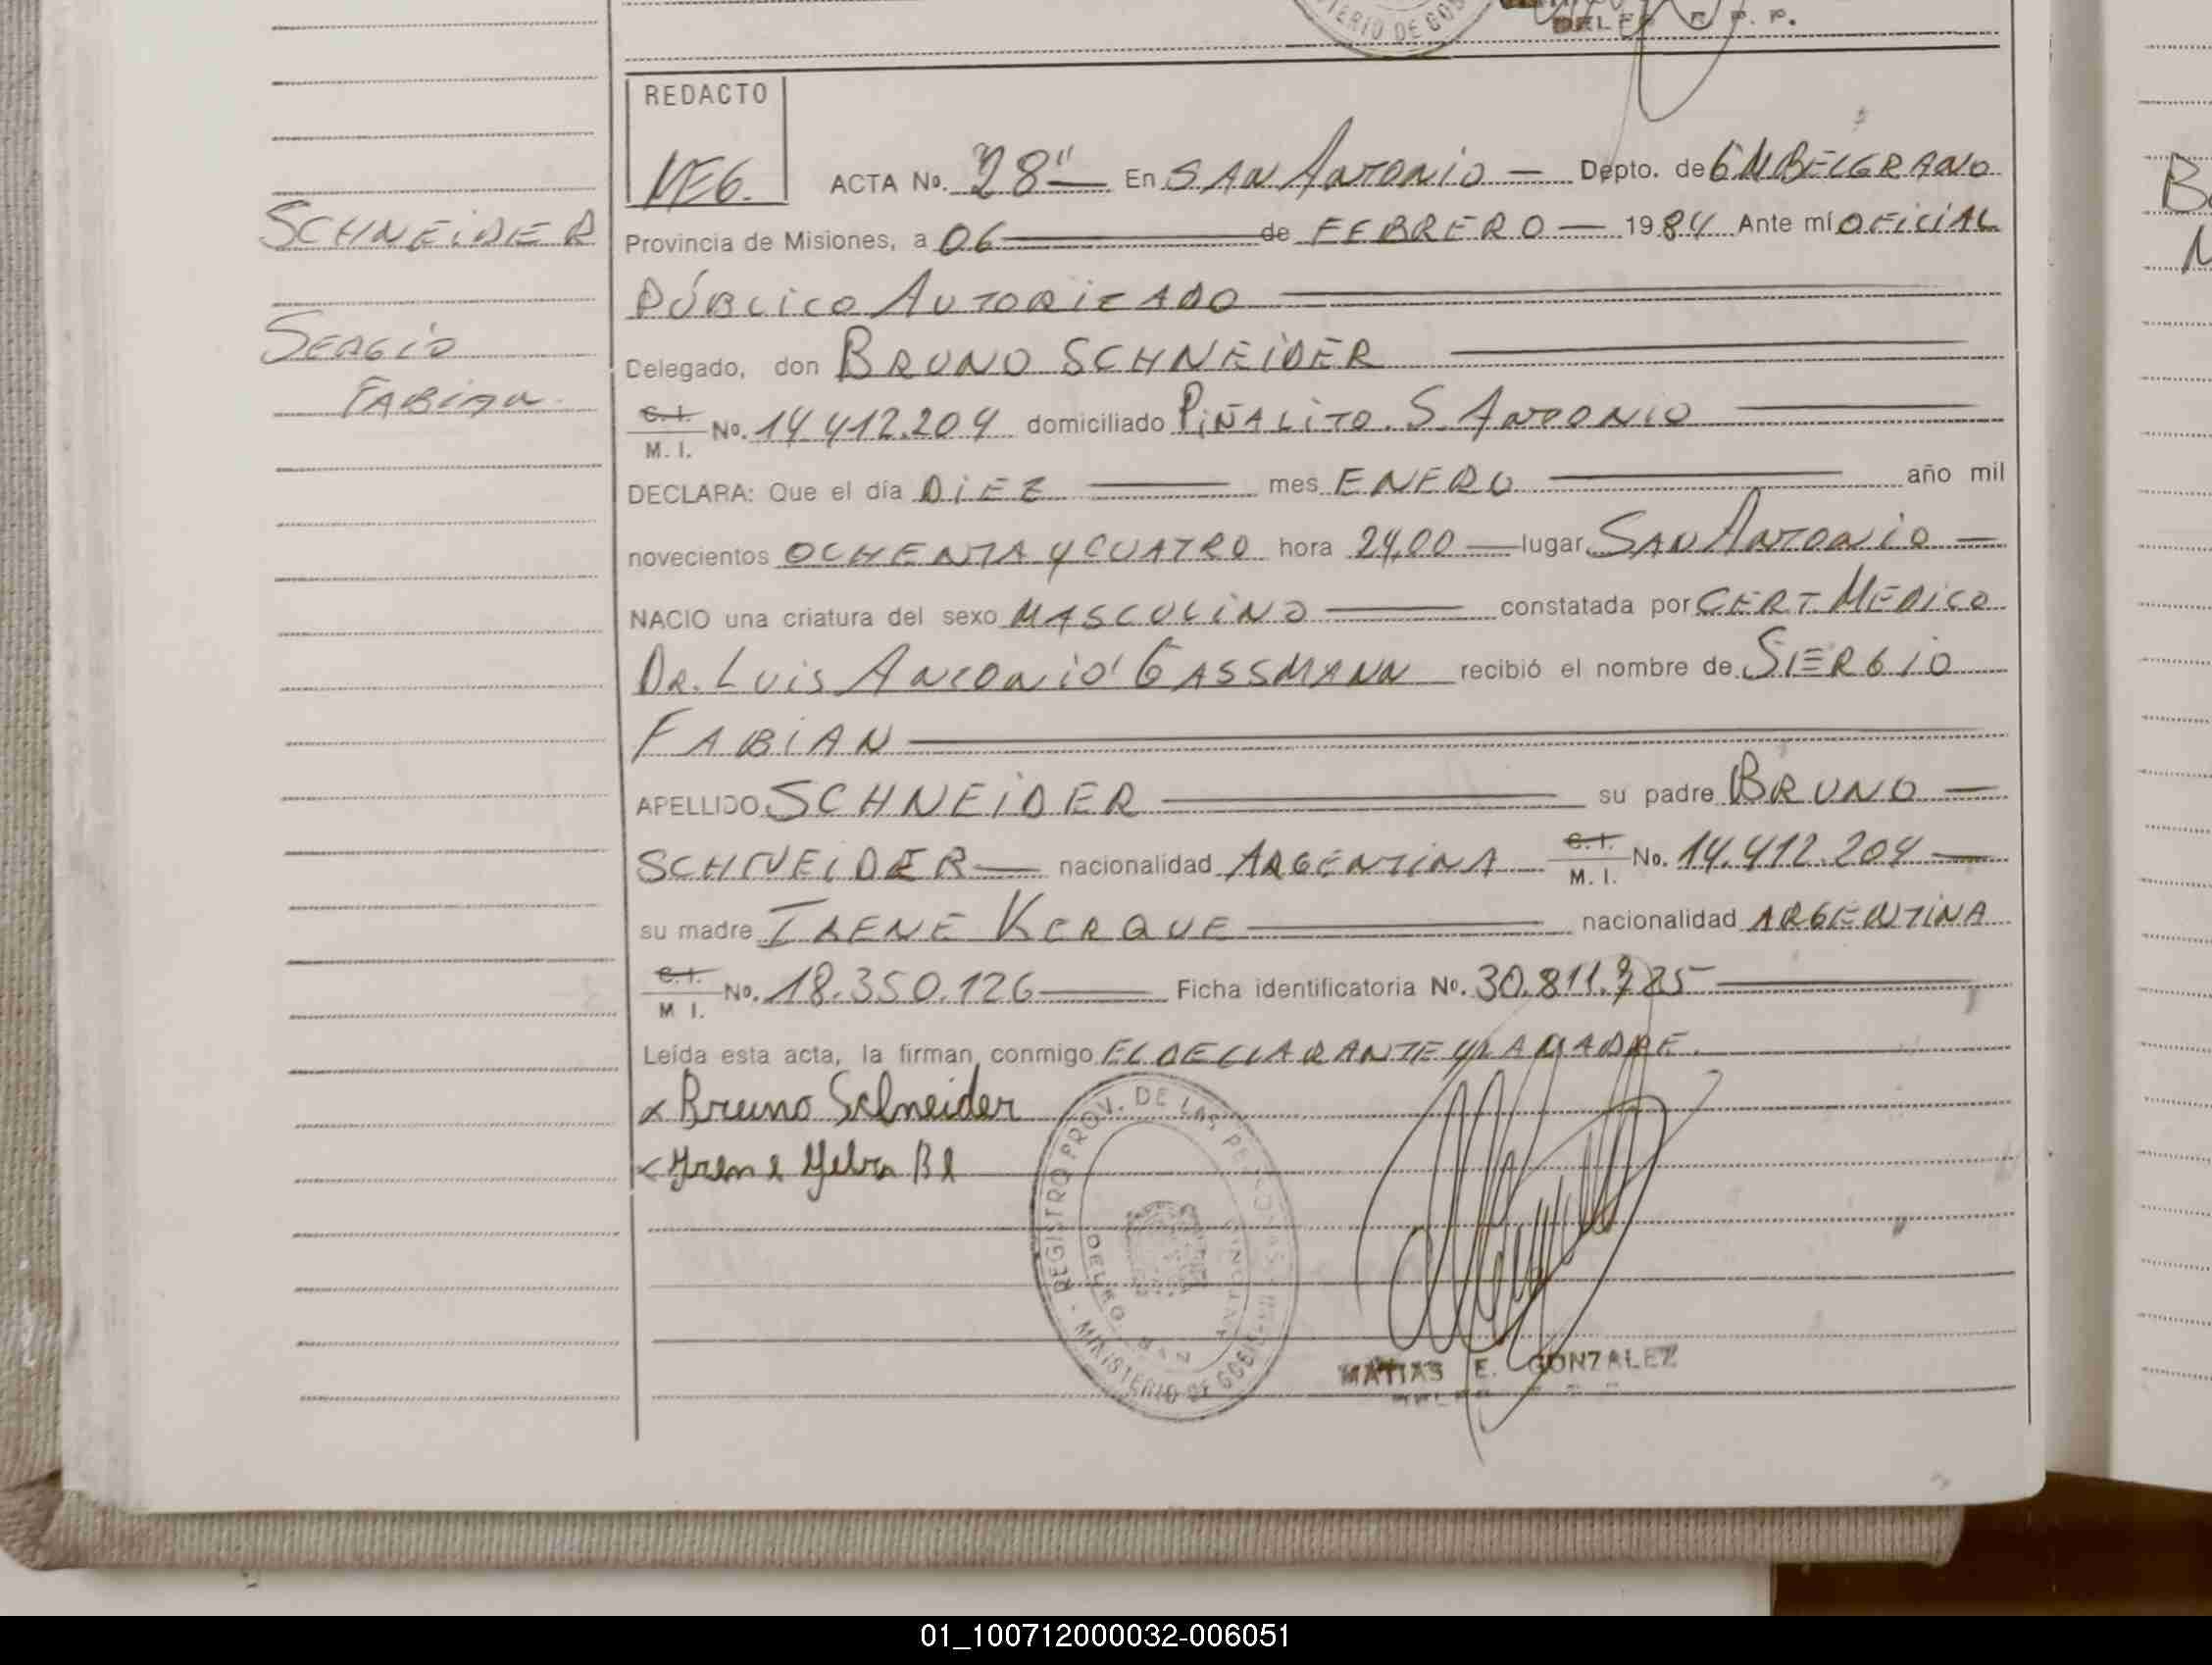 REDACTO
MEG.
ACTA No. "28" En SAN ANTONIO Depto. de GM BELGRANO
SCHNEIDER
Provincia de Misiones, a 06 de FEBRERO 1984 Ante mí OFICIAL
PÚBLICO AUTORIZADO
SERGIO
FABIAN
Delegado, don BRUNO SCHNEIDER
C.I. M.I. No. 14.412.204 domiciliado PIÑALITO. S. ANTONIO
DECLARA: Que el día DIEZ mes ENERO año mil
novecientos OCHENTA Y CUATRO hora 24,00 lugar SAN ANTONIO
NACIO una criatura del sexo MASCULINO constatada por CERT. MEDICO
DR. LUIS ANTONIO GASSMANN recibió el nombre de SIERGIO
FABIAN
APELLIDO SCHNEIDER su padre BRUNO
SCHNEIDER nacionalidad ARGENTINA C.I. M.I. No. 14.412.204
su madre IRENE KERQUE nacionalidad ARGENTINA
C.I. M.I. No. 18.350.126 Ficha identificatoria No. 30.811.785
Leída esta acta, la firman conmigo EL DECLARANTE Y LA MADRE.
x Bruno Schneider
REGISTRO PROV. DE LAS PERSONAS
MINISTERIO DE GOBIERNO
MATIAS E. GONZALEZ
01_100712000032-006051